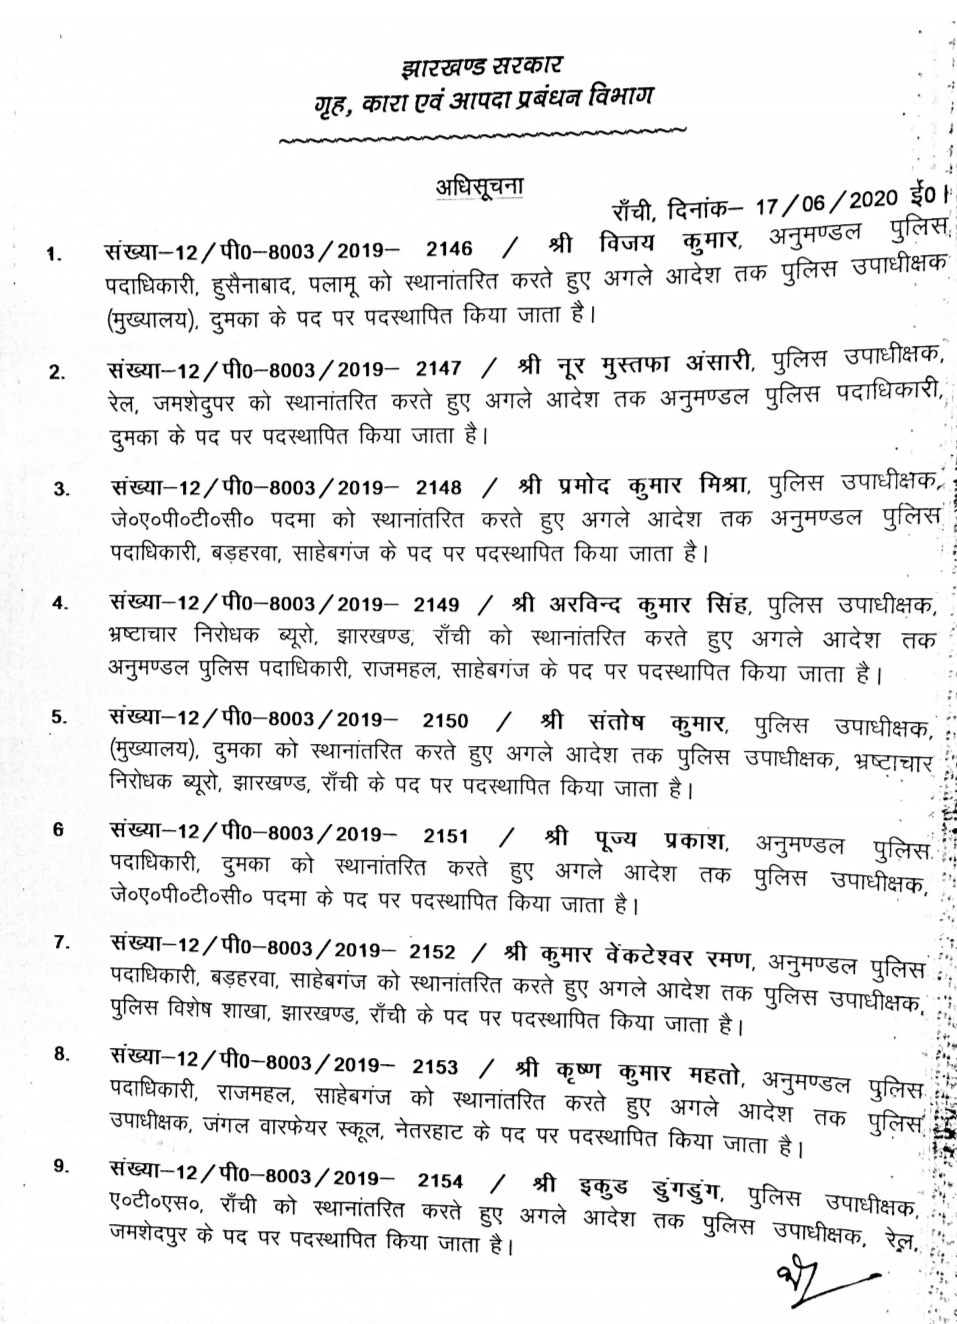 झारखण्ड सरकार
गृह, कारा एवं आपदा प्रबंधन विभाग
अधिसूचना
राँची, दिनांक– 17/06/2020 ई0।
1. संख्या–12/पी0–8003/2019– 2146 / श्री विजय कुमार, अनुमण्डल पुलिस
पदाधिकारी, हुसैनाबाद, पलामू को स्थानांतरित करते हुए अगले आदेश तक पुलिस उपाधीक्षक
(मुख्यालय), दुमका के पद पर पदस्थापित किया जाता है।
2. संख्या–12/पी0–8003/2019– 2147 / श्री नूर मुस्तफा अंसारी, पुलिस उपाधीक्षक,
रेल, जमशेदुपर को स्थानांतरित करते हुए अगले आदेश तक अनुमण्डल पुलिस पदाधिकारी,
दुमका के पद पर पदस्थापित किया जाता है।
3. संख्या–12/पी0–8003/2019– 2148 / श्री प्रमोद कुमार मिश्रा, पुलिस उपाधीक्षक,
जे०ए०पी०टी०सी० पदमा को स्थानांतरित करते हुए अगले आदेश तक अनुमण्डल पुलिस
पदाधिकारी, बड़हरवा, साहेबगंज के पद पर पदस्थापित किया जाता है।
4. संख्या–12/पी0–8003/2019– 2149 / श्री अरविन्द कुमार सिंह, पुलिस उपाधीक्षक,
भ्रष्टाचार निरोधक ब्यूरो, झारखण्ड, राँची को स्थानांतरित करते हुए अगले आदेश तक
अनुमण्डल पुलिस पदाधिकारी, राजमहल, साहेबगंज के पद पर पदस्थापित किया जाता है।
5. संख्या–12/पी0–8003/2019– 2150 / श्री संतोष कुमार, पुलिस उपाधीक्षक,
(मुख्यालय), दुमका को स्थानांतरित करते हुए अगले आदेश तक पुलिस उपाधीक्षक, भ्रष्टाचार
निरोधक ब्यूरो, झारखण्ड, राँची के पद पर पदस्थापित किया जाता है।
6 संख्या–12/पी0–8003/2019– 2151 / श्री पूज्य प्रकाश, अनुमण्डल पुलिस
पदाधिकारी, दुमका को स्थानांतरित करते हुए अगले आदेश तक पुलिस उपाधीक्षक,
जे०ए०पी०टी०सी० पदमा के पद पर पदस्थापित किया जाता है।
7. संख्या–12/पी0–8003/2019– 2152 / श्री कुमार वेंकटेश्वर रमण, अनुमण्डल पुलिस
पदाधिकारी, बड़हरवा, साहेबगंज को स्थानांतरित करते हुए अगले आदेश तक पुलिस उपाधीक्षक,
पुलिस विशेष शाखा, झारखण्ड, राँची के पद पर पदस्थापित किया जाता है।
8. संख्या–12/पी0–8003/2019– 2153 / श्री कृष्ण कुमार महतो, अनुमण्डल पुलिस
पदाधिकारी, राजमहल, साहेबगंज को स्थानांतरित करते हुए अगले आदेश तक पुलिस
उपाधीक्षक, जंगल वारफेयर स्कूल, नेतरहाट के पद पर पदस्थापित किया जाता है।
9. संख्या–12/पी0–8003/2019– 2154 / श्री इकुड डुंगडुंग, पुलिस उपाधीक्षक,
ए०टी०एस०, राँची को स्थानांतरित करते हुए अगले आदेश तक पुलिस उपाधीक्षक, रेल,
जमशेदपुर के पद पर पदस्थापित किया जाता है।